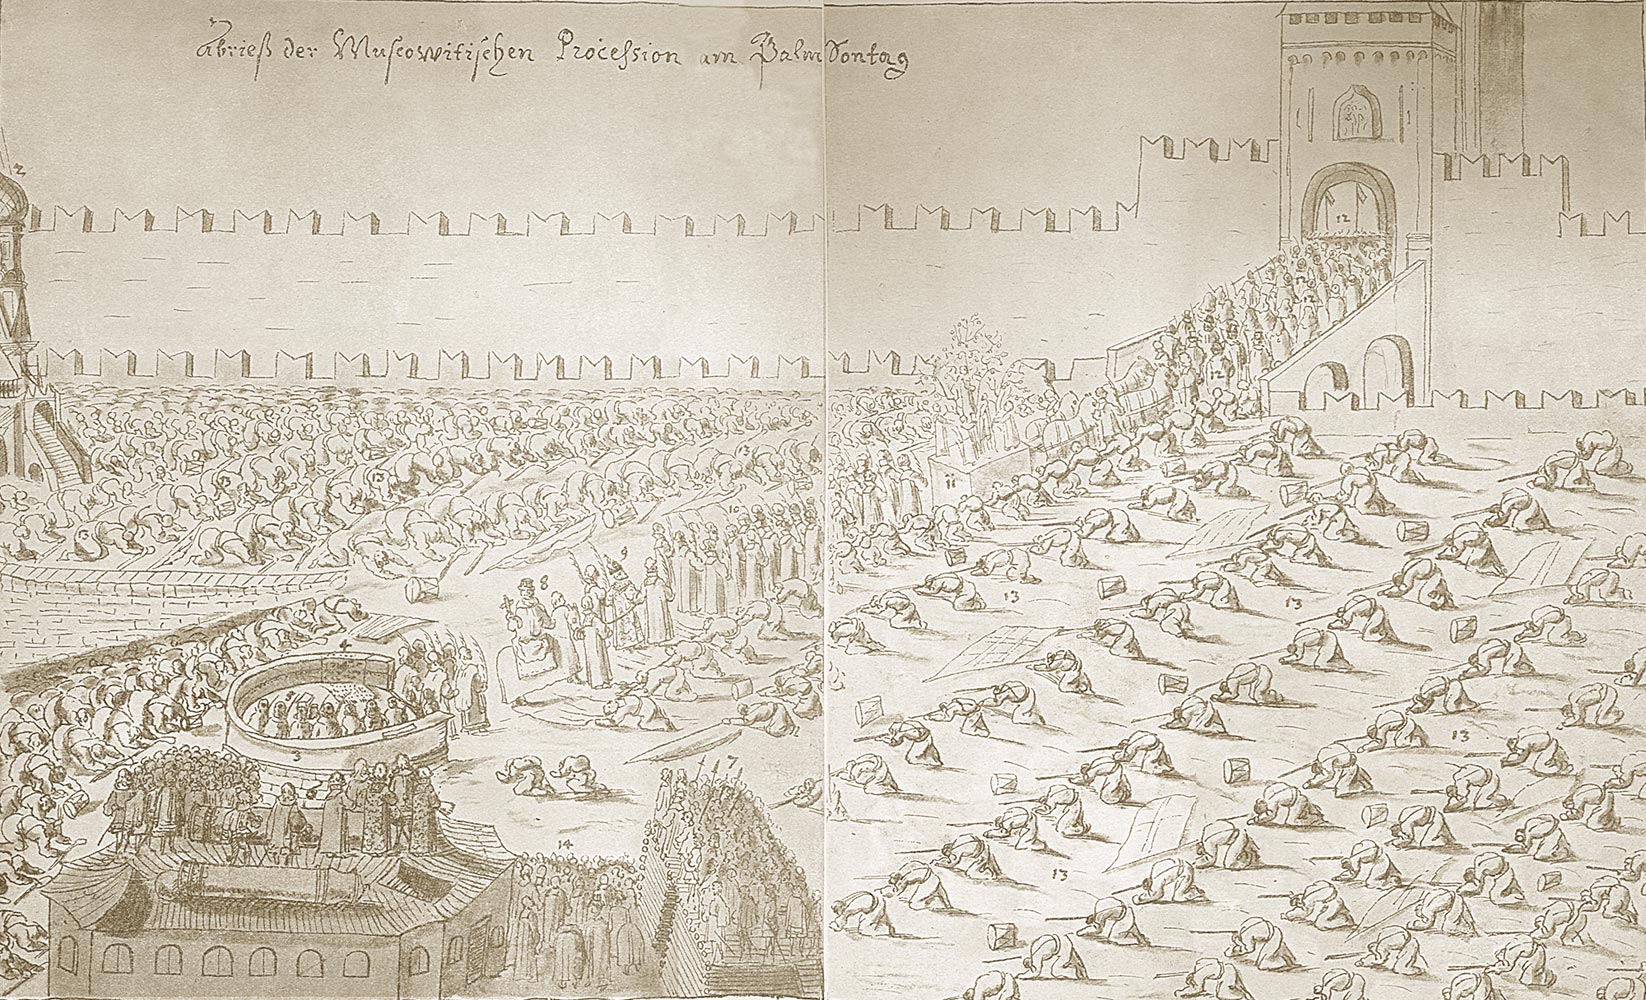 Abrieß der Muscowitischen Procession am Palm Sontag
2
12
12
12
11
13
13
10
8
13
13
4
13
3
7
14
13